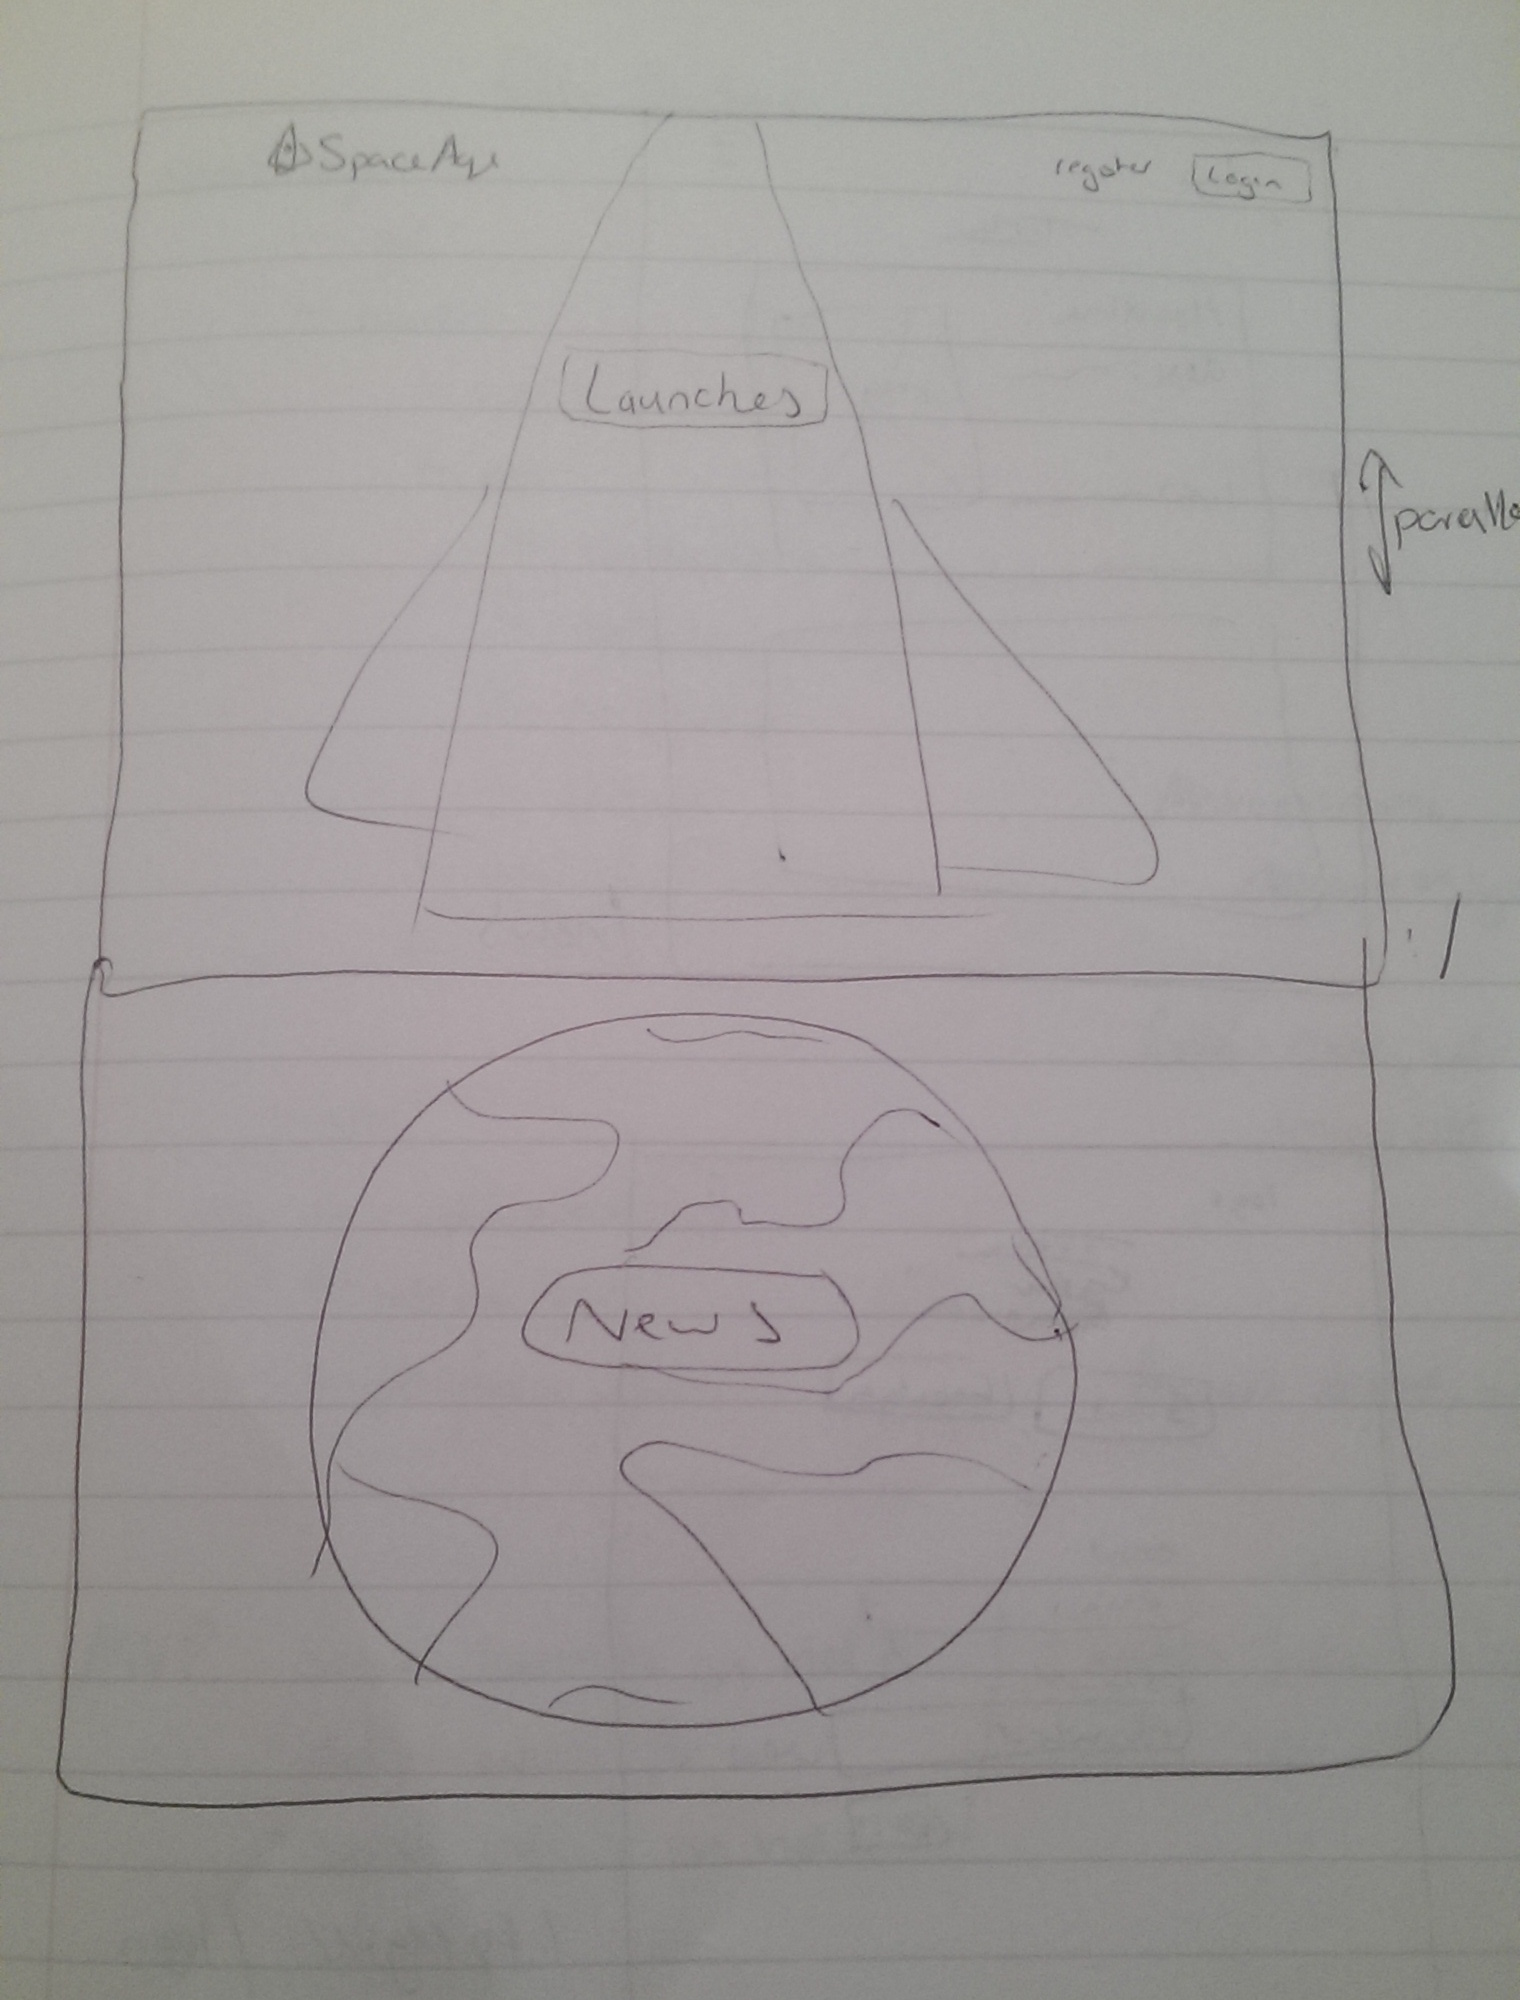 SpaceAge
register Login
Launches
News